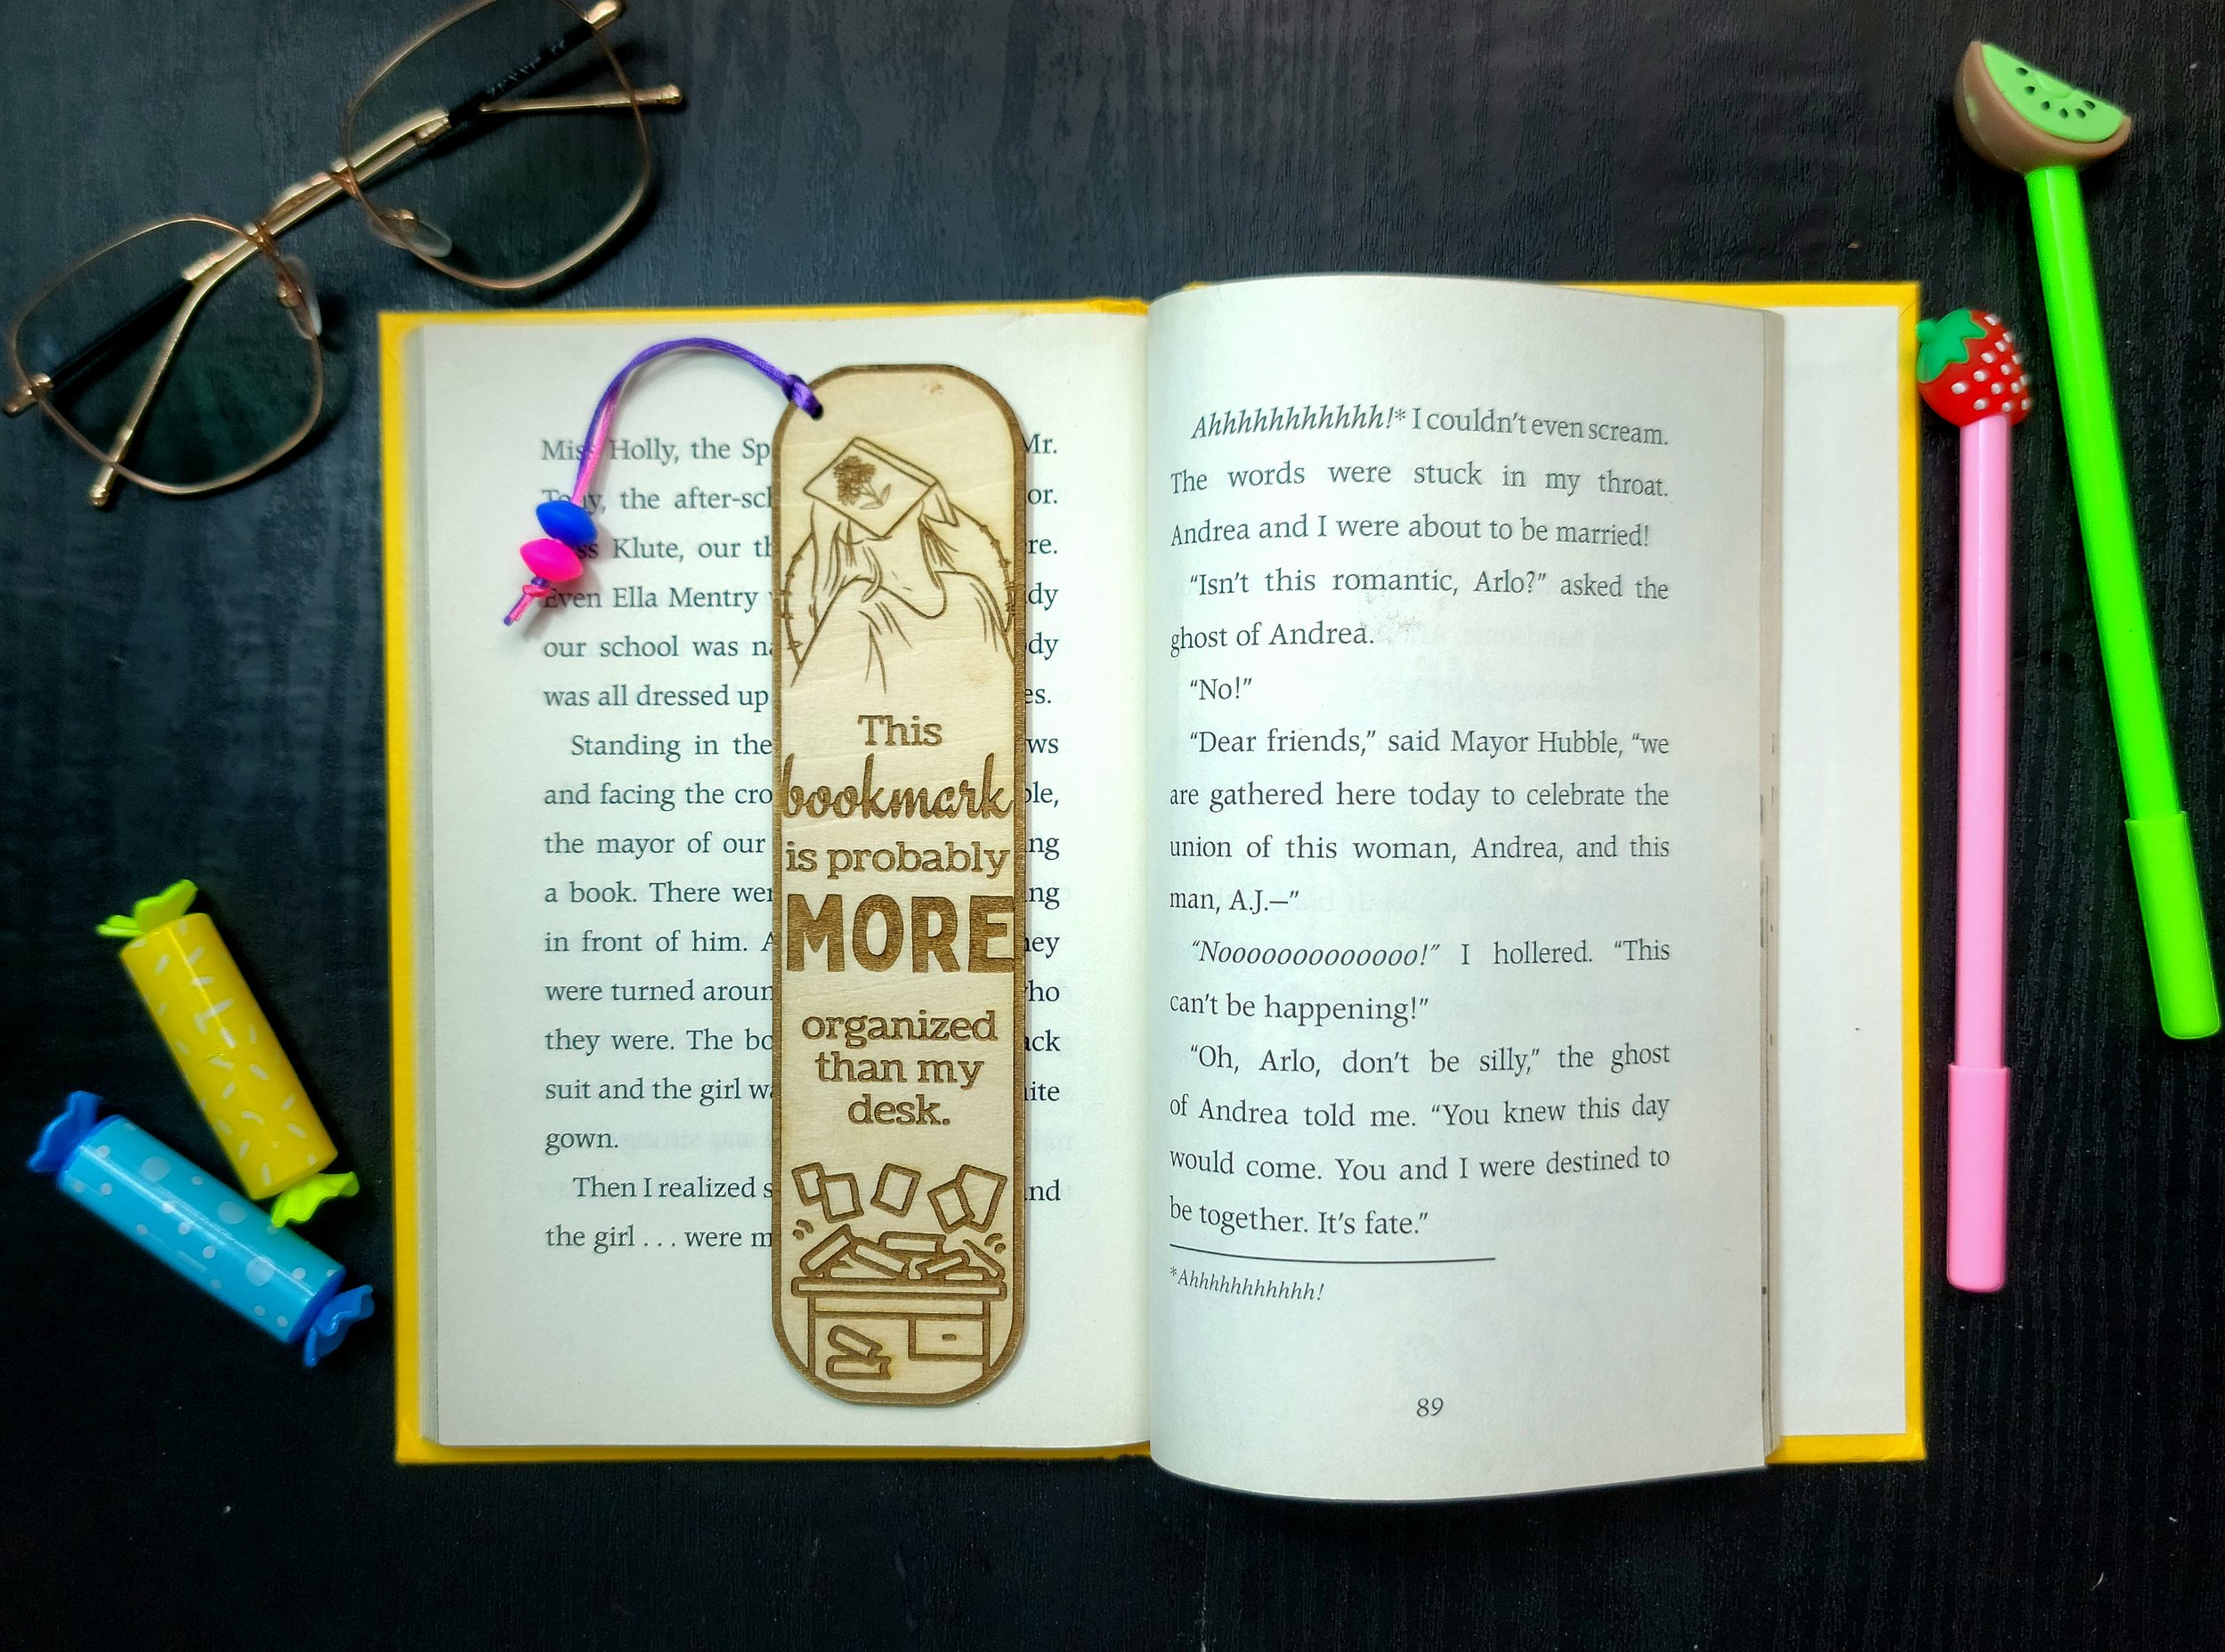 Miss Holly, the Mr.
the
Klute, our
Even Ella Mentry
our school was
was all dressed up
Standing in the
and facing the
the mayor of our
a book. There
in front of him.
were turned
they were. The
suit and the girl
gown.
Then I realized
the girl . . . were
This
bookmark
is probably
MORE
organized
than my
desk.
Ahhhhhhhhhhhh!* I couldn't even scream.
The words were stuck in my throat.
Andrea and I were about to be married!
“Isn't this romantic, Arlo?” asked the
ghost of Andrea.
“No!”
“Dear friends,” said Mayor Hubble, “we
are gathered here today to celebrate the
union of this woman, Andrea, and this
man, A.J.—”
“Nooooooooooooo!” I hollered. “This
can't be happening!”
“Oh, Arlo, don't be silly,” the ghost
of Andrea told me. “You knew this day
would come. You and I were destined to
be together. It's fate.”
*Ahhhhhhhhhhhh!
89